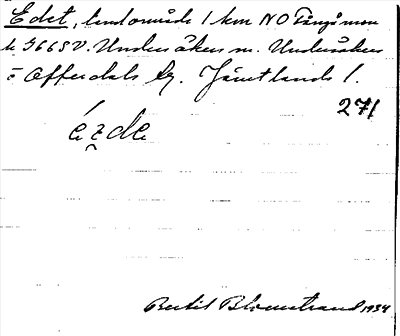 Edet, landområde 1 km NO Tångå mm
bl 5665V. Undersåkers sn. Undersåkers
o Offerdals tg. Jämtlands l.
271
ézde
Bertil Blomstrand 1934